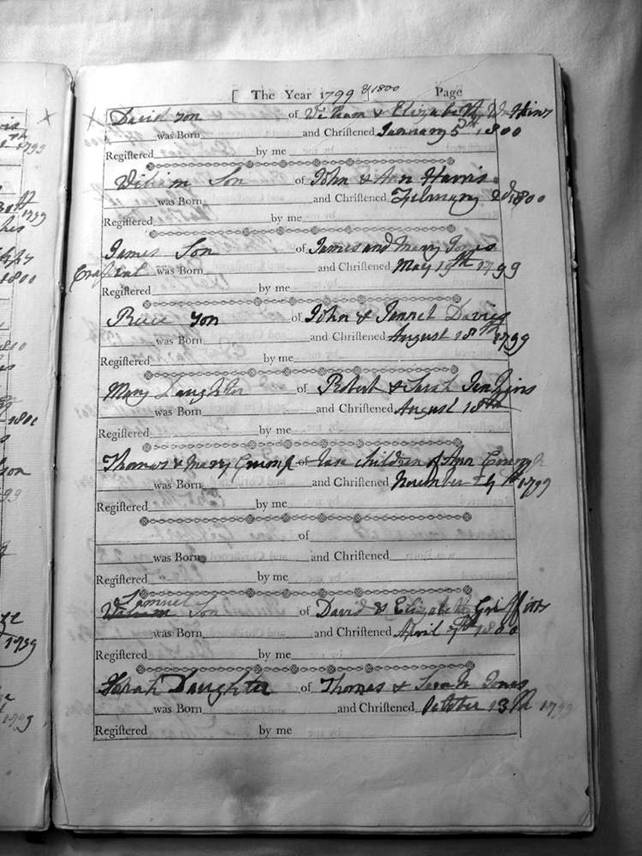 [ The Year 1799 & 1800 Page
David son of William & Elizabeth
was Born and Christened January 5th 1800
Registered by me
William Son of John & Ann Harris
was Born and Christened February 2d 1800
Registered by me
James Son of James and Mary Jones
was Born and Christened May 19th 1799
Registered by me
Reece son of John & Jennet Davies
was Born and Christened August 18th 1799
Registered by me
Mary Daughter of Robert & Sarah Jenkins
was Born and Christened August 18th
Registered by me
Thomas & Mary of children of Ann
was Born and Christened November 1799
Registered by me
of
was Born and Christened
Registered by me
Samuel
William Son of David & Elizabeth Griffiths
was Born and Christened April 7th 1800
Registered by me
Sarah Daughter of Thomas & Sarah Jones
was Born and Christened October 13th 1799
Registered by me